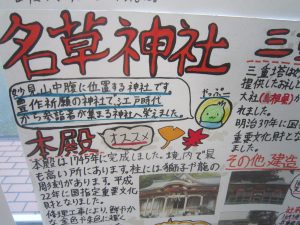 名草神社
妙見山中腹に位置する神社です
農作祈願の神社で、江戸時代
から参詣者が集まる神社へ栄えました。
やっぷー
本殿
オススメ
本殿は1745年に完成しました。境内で最
も高い所にあります。柱には獅子や龍の
彫刻があります。平成
22年に国指定重要文化
財となりました。
修理工事により、鮮やか
三重
三重塔は
提供したおし
大社(島根県)
れました。
明治37年に国
重要文化財と
なりました。
その他、建造